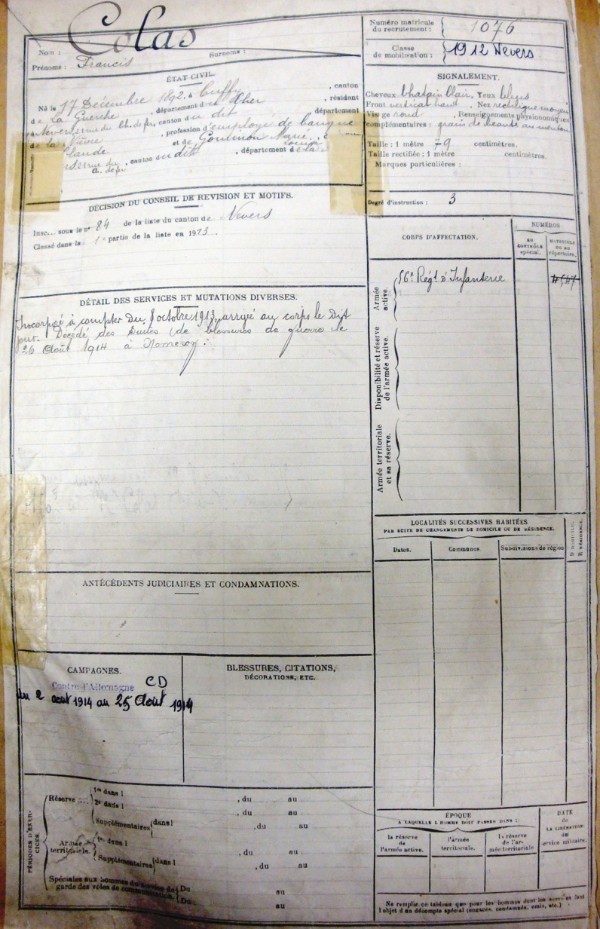 Nom : Colas
Prénoms : Francis Surnoms :
Numéro matricule du recrutement : 1076
Classe de mobilisation : 1912 Nevers
ÉTAT CIVIL.
Né le 17 Décembre 1892, à Cuffy, canton
de La Guerche, département du Cher, résident
canton du dit, département
profession d'employé de banque
et de
canton du dit, département de la
SIGNALEMENT.
Cheveux chatain clair, Yeux bleus
Front vertical haut, Nez rectiligne moyen
Visage rond, Renseignements physionomiques
complémentaires : grain de beauté au menton
Taille : 1 mètre 79 centimètres.
Taille rectifiée : 1 mètre centimètres.
Marques particulières :
Degré d'instruction : 3
DÉCISION DU CONSEIL DE RÉVISION ET MOTIFS.
Inscrit sous le n° 84 de la liste du canton de Nevers
Classé dans la 1e partie de la liste en 1913.
CORPS D'AFFECTATION.
NUMÉROS
AU CONTRÔLE SPÉCIAL.
MATRICULE OU AU RÉPERTOIRE.
Armée active.
56e Régt d'Infanterie
Disponibilité et réserve de l'armée active.
Armée territoriale et sa réserve.
DÉTAIL DES SERVICES ET MUTATIONS DIVERSES.
Incorporé à compter du 8 octobre 1913, arrivé au corps le Dit
jour. Décédé des suites de blessures de guerre le
26 Août 1914 à
LOCALITÉS SUCCESSIVES HABITÉES
PAR SUITE DE CHANGEMENTS DE DOMICILE OU DE RÉSIDENCE.
Dates. Communes. Subdivisions de région D. domicile, R. résidence.
ANTÉCÉDENTS JUDICIAIRES ET CONDAMNATIONS.
CAMPAGNES.
Contre l'Allemagne CD
du 2 août 1914 au 25 Août 1914
BLESSURES, CITATIONS,
DÉCORATIONS, ETC.
PÉRIODES D'EXERCICES.
Réserve 1re dans l , du au
2e dans l , du au
Supplémentaires dans l , du au
Armée territoriale. 1re dans l , du au
Supplémentaires dans l , du au
Spéciales aux hommes du service de garde des voies de communication. Du au
Du au
ÉPOQUE
À LAQUELLE L'HOMME DOIT PASSER DANS :
la réserve de l'armée active. l'armée territoriale. la réserve de l'armée territoriale
DATE de LA LIBÉRATION du service militaire.
Ne remplir ce tableau que pour les hommes dont les services font
l'objet d'un décompte spécial (engagés, condamnés, omis, etc.)